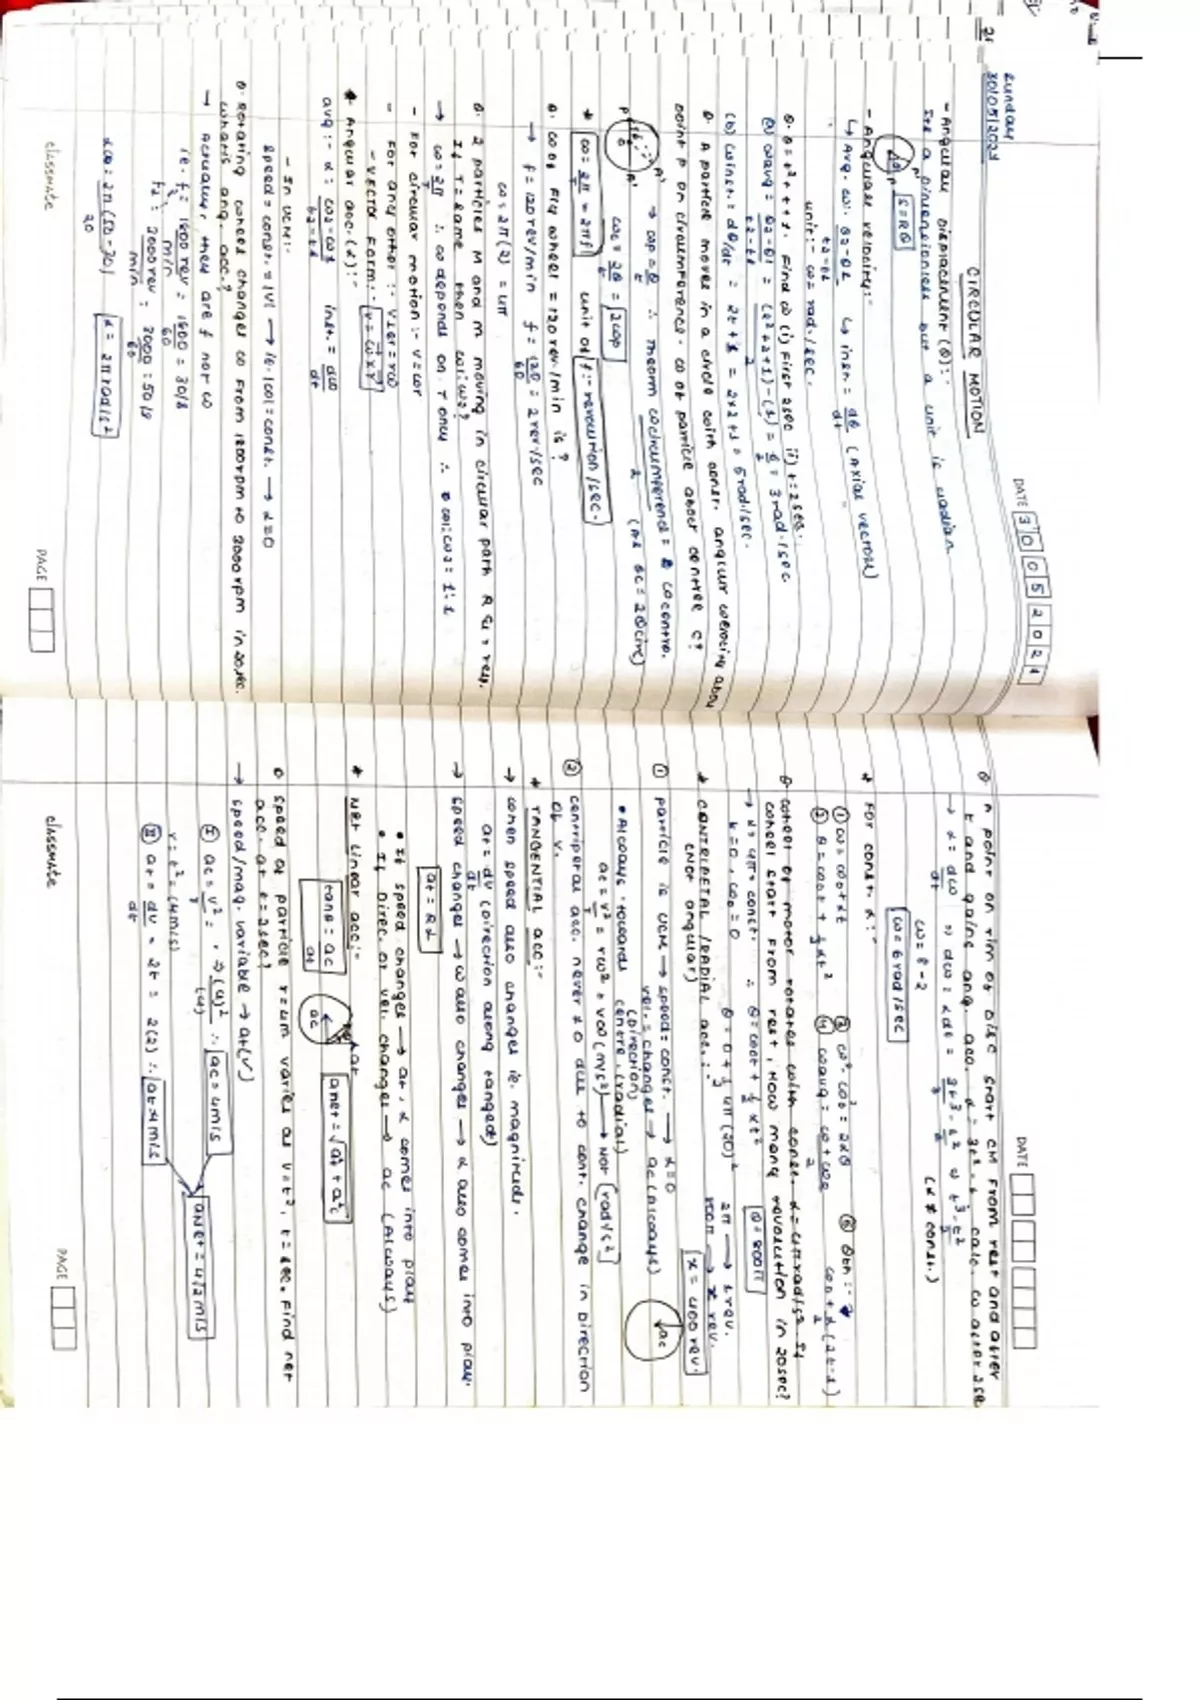 21
Sunday
30/05/2021
DATE 3 0 0 5 2 0 2 1
CIRCULAR MOTION
- Angular Displacement (θ):-
Its a Dimensionless but a unit is radian
S=Rθ
- Angular velocity:-
↳ Avg. ω. θ2-θ1 / t2-t1 ↳ inst. = dθ/dt (Axial vector)
unit:- ω= rad./sec.
Q. θ = t² + t + 1. Find ω (i) First 2sec ii) t=2sec.
(a) ωavg = θ2-θ1 / t2-t1 = (2²+2+1)-(1) / 2 = 6/2 = 3 rad./sec
(b) ωinst. = dθ/dt = 2t+1 = 2×2+1 = 5rad./sec.
Q. A particle moves in a circle with const. angular velocity about
point P on circumference. ω of particle about centre C?
→ ωp = θ/t ∴ Theorm ωcircumference = ωcentre / 2
ωc = 2θ/t = 2ωp (As θc = 2θcire)
* ω = 2π/T = 2πf unit of f:- revolution/sec.
Q. ω of Fly wheel = 120 rev./min is?
→ f = 120 rev/min f = 120/60 = 2 rev/sec
ω = 2π(2) = 4π
Q. 2 particles M and m moving in circular path R & r resp.
If T = same then ω1:ω2?
→ ω = 2π/T ∴ ω depends on T only ∴ ω1:ω2 = 1:1
- For circular motion:- v=ωr
- For any other:- v⊥er = rω
- Vector Form:- v = ω×r
* Angular acc. (α):-
avg:- α = ω2-ω1 / t2-t1 inst. = dω/dt
- In UCM:-
speed = const. = |v| → ie. |ω| = const. → α=0
Q. Rotating wheel changes ω from 1800rpm to 3000rpm in 20sec.
whats ang. acc?
→ Actually, they are f not ω
ie. f1 = 1800 rev/min = 1800/60 = 30/s
f2 = 3000 rev/min = 3000/60 = 50/s
α = 2π(50-30) / 20 α = 2π rad/s²
classmate
PAGE
DATE
Q A point on rim of Disc start CM from rest and after
t and gains ang. acc. α = 3t²-t, calc. ω after 2se
→ α = dω/dt ⇒ dω = αdt
(α ≠ const.)
ω = 8-2
ω = 6 rad/sec
* For const. α:-
① ω = ω0+αt ③ ω²-ω0² = 2αθ
② θ = ω0t + 1/2 αt² ④ ωavg = ω+ω0 / 2
Q- wheel of motor rotates with const. α = 4π rad/s². If
wheel start from rest, How many revolution in 20sec?
→ α = 4π = const. ∴ θ = ω0t + 1/2 αt²
ω0 = 0 θ = 0 + 1/2 4π(20)² θ = 800π
2π → 1 rev.
800π → x rev.
x = 400 rev.
* CENTRIPETAL/RADIAL acc.:-
(Not angular)
① particle is UCM → speed = const. → α = 0
vel. = changes → ac (Always)
(Direction)
• Always towards centre. (radial)
ac = v²/r = rω² = vω (m/s²) → Not (rad/s²)
ac
② centripetal acc. never ≠ 0 due to cont. change in Direction
of v.
* TANGENTIAL acc:-
→ when speed also changes ie. magnitude.
at = dv/dt (Direction along tangent)
→ speed changes → ω also changes → α also comes into play.
at = Rα
• If speed changes → at, α comes into play
• If Direc. of vel. changes → ac (Always)
* Net Linear acc:-
tanθ = ac/at
ac
at
anet = √at²+a²c
Q speed of particle r=4m varies as v=t², t=sec. Find net
acc. at t=2sec?
→ speed/mag. variable → at(✓)
Ⓘ ac = v²/r ⇒ (4)²/(4) ∴ ac = 4m/s
v = t² = (4m/s)
Ⓘⓘ at = dv/dt = 2t = 2(2) ∴ at = 4m/s
anet = 4√2 m/s
classmate
PAGE